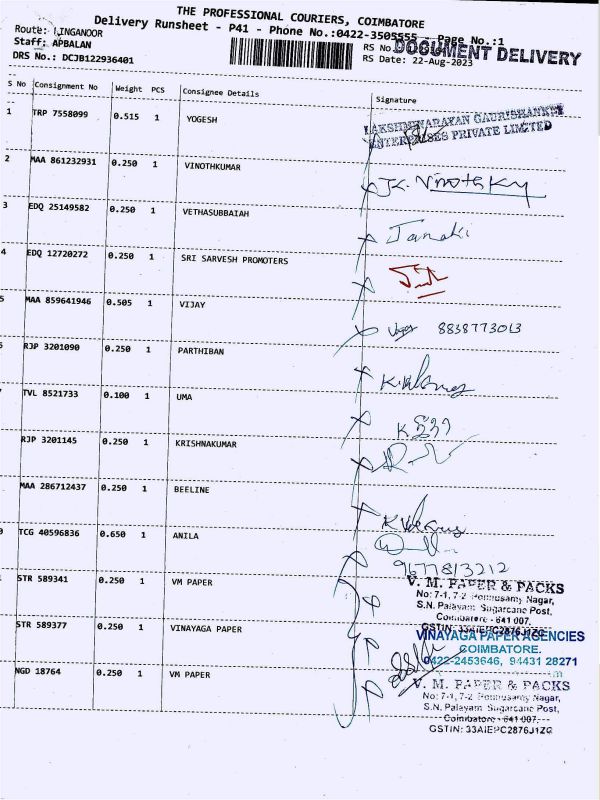 THE PROFESSIONAL COURIERS, COIMBATORE
Delivery Runsheet - P41 - Phone No.:0422-3505555 Page No.:1
Route: LINGANOOR
Staff: APBALAN
DRS No.: DCJB122936401
RS No
DOCUMENT DELIVERY
RS Date: 22-Aug-2023
S No Consignment No Weight PCS Consignee Details Signature
1 TRP 7558099 0.515 1 YOGESH
LAKSHMINARAYAN GAURISHANKER
ENTERPRISES PRIVATE LIMITED
2 MAA 861232931 0.250 1 VINOTHKUMAR
3 EDQ 25149582 0.250 1 VETHASUBBAIAH Janaki
4 EDQ 12720272 0.250 1 SRI SARVESH PROMOTERS
5 MAA 859641946 0.505 1 VIJAY 8838773013
RJP 3201090 0.250 1 PARTHIBAN
TVL 8521733 0.100 1 UMA
RJP 3201145 0.250 1 KRISHNAKUMAR
MAA 286712437 0.250 1 BEELINE
TCG 40596836 0.650 1 ANILA
9677813212
STR 589341 0.250 1 VM PAPER
V. M. PAPER & PACKS
No: 7-1, 7-2 Ponnusamy Nagar,
S.N. Palayam Sugarcane Post,
Coimbatore - 641 007.
GSTIN: 33AIEPC2876J1ZG
STR 589377 0.250 1 VINAYAGA PAPER
VINAYAGA PAPER AGENCIES
COIMBATORE.
0422-2453646, 94431 28271
NGD 18764 0.250 1 VM PAPER
V. M. PAPER & PACKS
No: 7-1, 7-2 Ponnusamy Nagar,
S.N. Palayam Sugarcane Post,
Coimbatore - 641 007.
GSTIN: 33AIEPC2876J1ZG